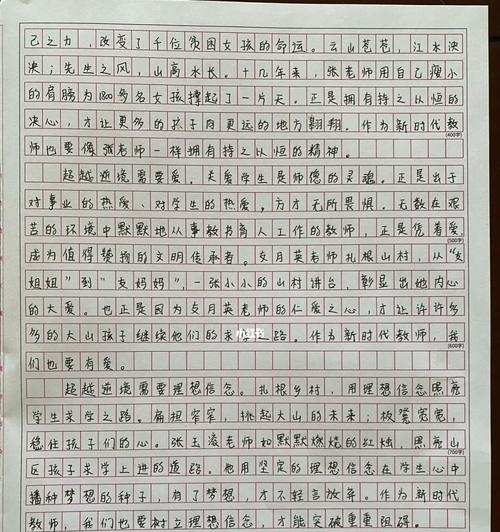 己之力，改变了千位贫困女孩的命运。云山苍苍，江水泱
泱；先生之风，山高水长。十几年来，张老师用自己瘦小
的肩膀为1800多名女孩撑起了一片天。正是拥有持之以恒的
决心，才让更多的孩子向更远的地方翱翔。作为新时代教
(400字)
师也要像张老师一样拥有持之以恒的精神。
超越逆境需要爱。关爱学生是师德的灵魂。正是出于
对事业的热爱、对学生的热爱，方才无所畏惧。无数在艰
苦的环境中默默地从事教书育人工作的教师，正是凭着爱
(500字)
成为值得赞揚的文明传承者。支月英老师扎根山村，从“支
姐姐”到“支妈妈”，一张小小的山村讲台，彰显出她内心
的大爱。也正是因为支月英老师的仁爱之心，才让许许多
多的大山孩子继续他们的求学之路。作为新时代教师，我
小红书
(600字)
们也要有爱。
超越逆境需要理想信念。扎根乡村，用理想信念照亮
学生求学之路。扁担窄窄，挑起大山的未来；板凳宽宽，
稳住孩子们的心。张玉滚老师如默默燃烧的红烛，照亮山
(700字)
区孩子求学上进的道路。他用坚实的理想信念在学生心中
播种梦想的种子，有了梦想，才不轻言放弃。作为新时代
教师，我们也要树立理想信念，才能突破重重阻碍。